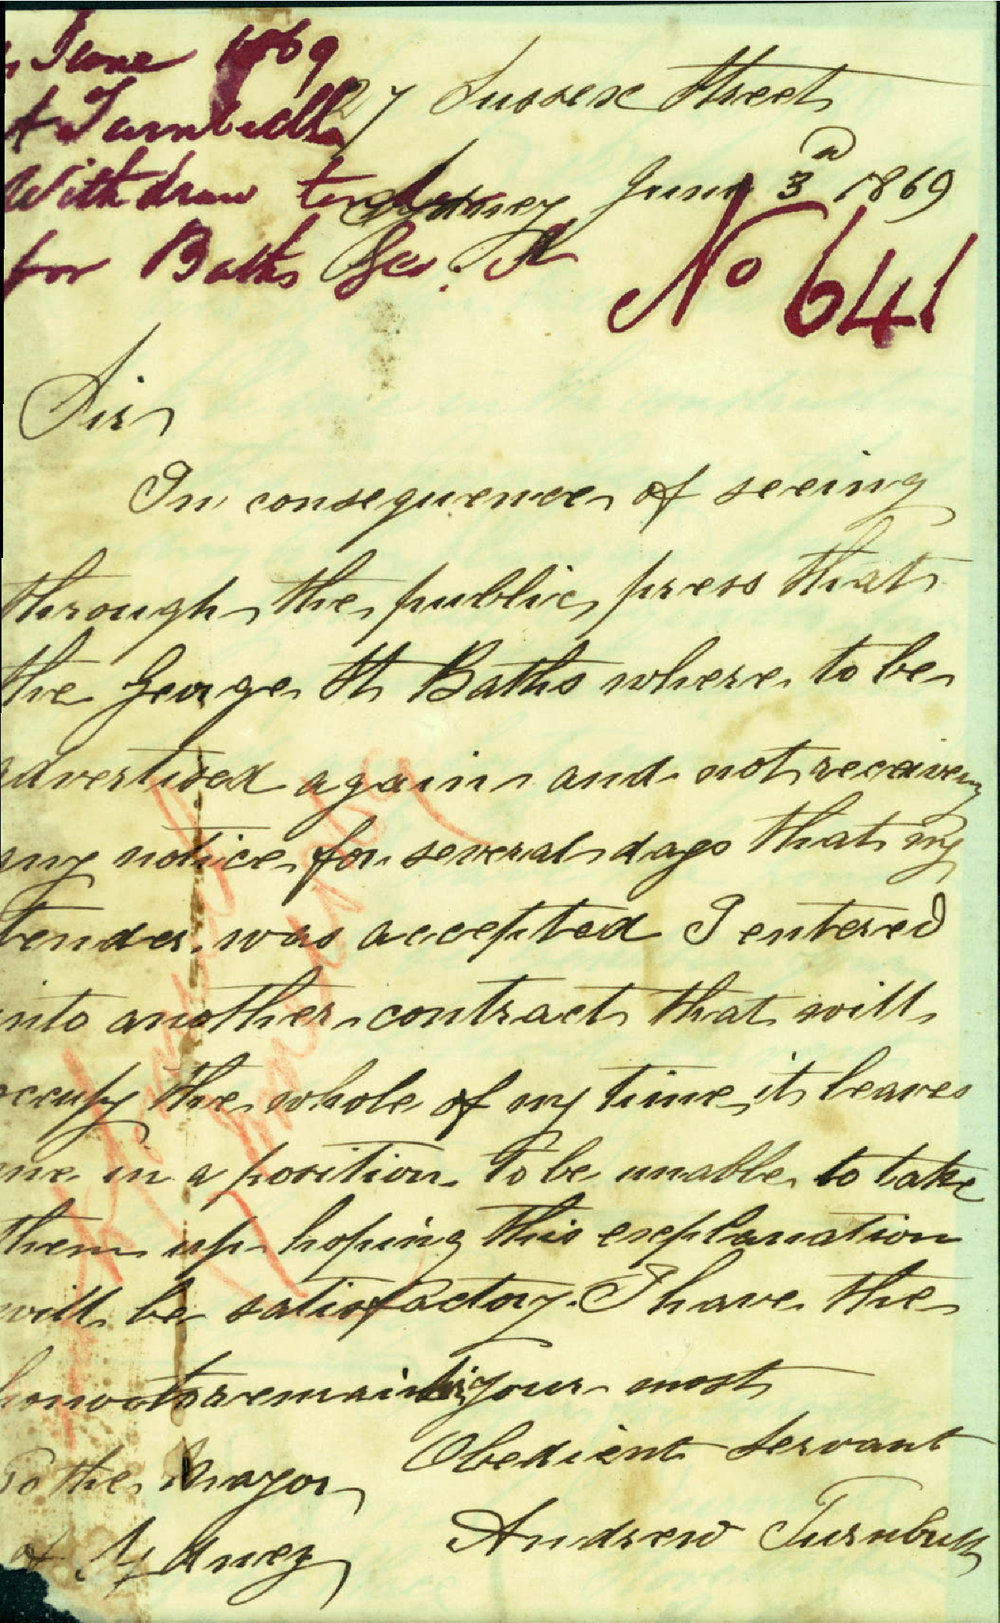 June 1869
A Turnbull
Withdraw tender
for Baths Geo. St
27 Sussex Street
Sydney June 3d 1869
No 641
Sir
In consequence of seeing
through the public press that
the George St Baths where to be
advertised again and not receiving
any notice for several days that my
tender was accepted I entered
into another contract that will
occupy the whole of my time it leaves
me in a position to be unable to take
them up hoping this explanation
will be satisfactory. I have the
honor to remain Sir your most
Obedient Servant
Andrew Turnbull
To the Mayor
of Sydney